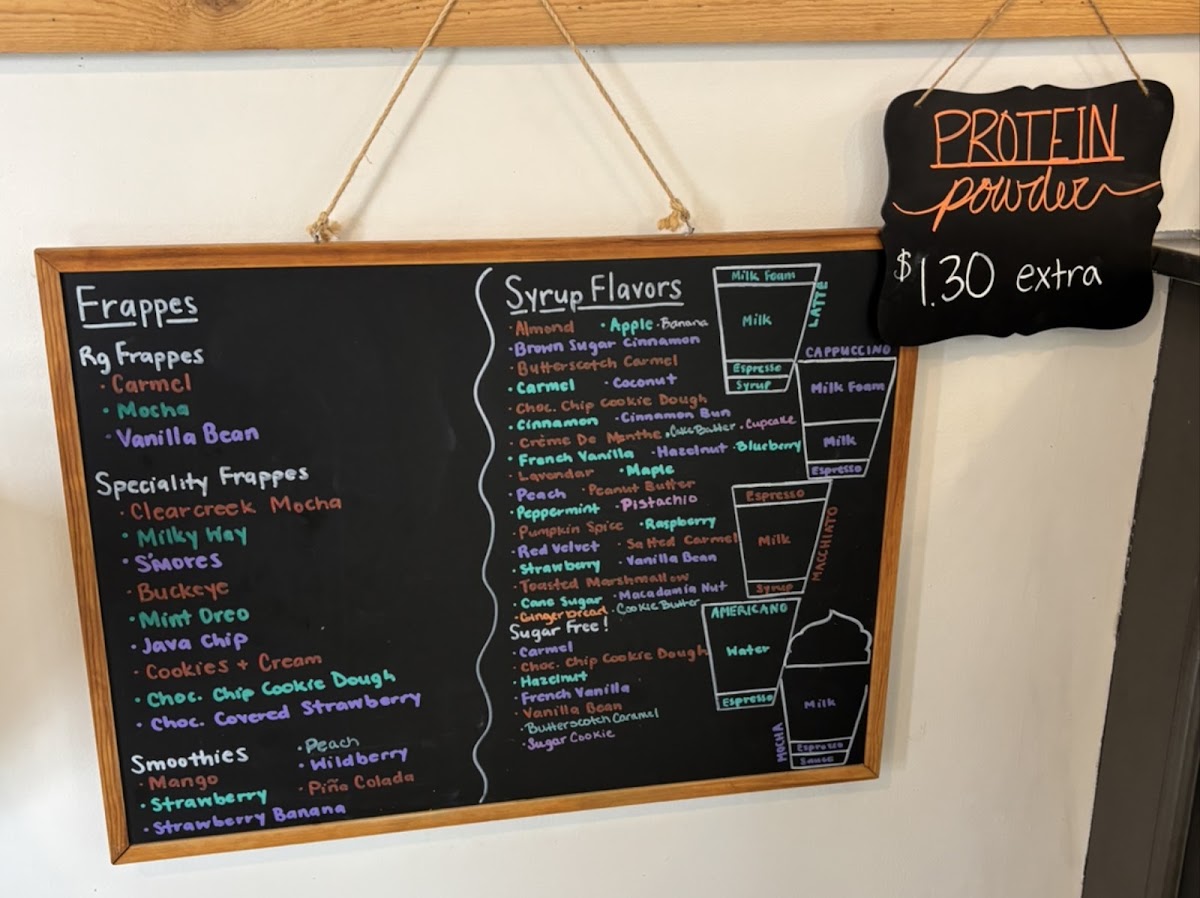 PROTEIN
powder
$1.30 extra
Frappes
Rg Frappes
· Carmel
· Mocha
· Vanilla Bean
Speciality Frappes
· Clearcreek Mocha
· Milky Way
· S'mores
· Buckeye
· Mint Oreo
· Java Chip
· Cookies + Cream
· Choc. Chip Cookie Dough
· Choc. Covered Strawberry
Smoothies
· Mango
· Strawberry
· Strawberry Banana
· Peach
· Wildberry
· Piña Colada
Syrup Flavors
· Almond · Apple · Banana
· Brown Sugar Cinnamon
· Butterscotch Carmel
· Carmel · Coconut
· Choc. Chip Cookie Dough
· Cinnamon · Cinnamon Bun
· Crème De Menthe · Cake Batter · Cupcake
· French Vanilla · Hazelnut · Blueberry
· Lavendar · Maple
· Peach · Peanut Butter
· Peppermint · Pistachio
· Pumpkin Spice · Raspberry
· Red Velvet · Salted Carmel
· Strawberry · Vanilla Bean
· Toasted Marshmallow
· Cane Sugar · Macadamia Nut
· Gingerbread · Cookie Butter
Sugar Free!
· Carmel
· Choc. Chip Cookie Dough
· Hazelnut
· French Vanilla
· Vanilla Bean
· Butterscotch Caramel
· Sugar Cookie
LATTE
Milk Foam
Milk
Espresso
Syrup
CAPPUCCINO
Milk Foam
Milk
Espresso
MACCHIATO
Espresso
Milk
Syrup
AMERICANO
Water
Espresso
MOCHA
Milk
Espresso
Sauce